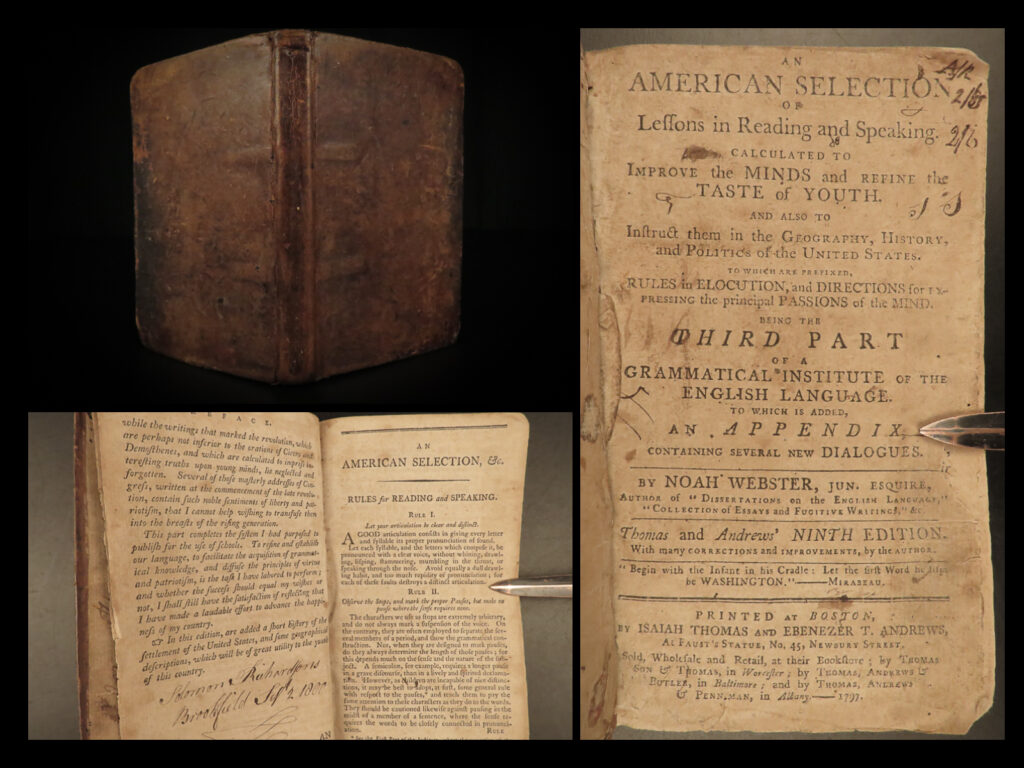 AN
AMERICAN SELECTION
OF
Leſſons in Reading and Speaking.
CALCULATED TO
IMPROVE the MINDS and REFINE the
TASTE of YOUTH.
AND ALSO TO
Inſtruct them in the GEOGRAPHY, HISTORY,
and POLITICS of the UNITED STATES.
TO WHICH ARE PREFIXED,
RULES in ELOCUTION, and DIRECTIONS for EX-
PRESSING the principal PASSIONS of the MIND.
BEING THE
THIRD PART
OF A
GRAMMATICAL INSTITUTE OF THE
ENGLISH LANGUAGE.
TO WHICH IS ADDED,
AN APPENDIX,
CONTAINING SEVERAL NEW DIALOGUES.
BY NOAH WEBSTER, JUN. ESQUIRE,
AUTHOR OF "DISSERTATIONS ON THE ENGLISH LANGUAGE,"
"COLLECTION OF ESSAYS AND FUGITIVE WRITINGS," &c.
Thomas and Andrews' NINTH EDITION.
With many CORRECTIONS and IMPROVEMENTS, by the AUTHOR.
"Begin with the Infant in his Cradle: Let the firſt Word he liſps
be WASHINGTON."——MIRABEAU.
PRINTED AT BOSTON,
BY ISAIAH THOMAS AND EBENEZER T. ANDREWS,
AT FAUST'S STATUE, No. 45, NEWBURY STREET.
Sold, Wholeſale and Retail, at their Bookſtore; by THOMAS
SON & THOMAS, in Worceſter; by THOMAS, ANDREWS &
BUTLER, in Baltimore; and by THOMAS, ANDREWS
& PENNIMAN, in Albany.— 1797.
while the writings that marked the revolution, which
are perhaps not inferior to the orations of Cicero and
Demoſthenes, and which are calculated to impreſs in-
tereſting truths upon young minds, lie neglected and
forgotten. Several of thoſe maſterly addreſſes of Con-
greſs, written at the commencement of the late revolu-
tion, contain ſuch noble ſentiments of liberty and pat-
riotiſm, that I cannot help wiſhing to transfuſe them
into the breaſts of the riſing generation.
This part completes the ſyſtem I had purpoſed to
publiſh for the uſe of ſchools. To refine and eſtabliſh
our language, to facilitate the acquiſition of grammat-
ical knowledge, and diffuſe the principles of virtue
and patriotiſm, is the taſk I have labored to perform;
and whether the ſucceſs ſhould equal my wiſhes or
not, I ſhall ſtill have the ſatisfaction of reflecting that
I have made a laudable effort to advance the happi-
neſs of my country.
In this edition, are added a ſhort hiſtory of the
ſettlement of the United States, and ſome geographical
deſcriptions, which will be of great utility to the youth
of this country.
Richardsons
Brookfield 1800
AN
AN
AMERICAN SELECTION, &c.
RULES for READING and SPEAKING.
RULE I.
Let your articulation be clear and diſtinct.
A GOOD articulation conſiſts in giving every letter
and ſyllable its proper pronunciation of ſound.
Let each ſyllable, and the letters which compoſe it, be
pronounced with a clear voice, without whining, drawl-
ing, liſping, ſtammering, mumbling in the throat, or
ſpeaking through the noſe. Avoid equally a dull drawl-
ing habit, and too much rapidity of pronunciation; for
each of theſe faults deſtroys a diſtinct articulation.
RULE II.
Obſerve the ſtops, and mark the proper Pauſes, but make no
pauſe where the ſenſe requires none.
The characters we uſe as ſtops are extremely arbitrary,
and do not always mark a ſuſpenſion of the voice. On
the contrary, they are often employed to ſeparate the ſeve-
ral members of a period, and ſhow the grammatical con-
ſtruction. Nor, when they are deſigned to mark pauſes,
do they always determine the length of thoſe pauſes; for
this depends much on the ſenſe and the nature of the ſub-
ject. A ſemicolon, for example, requires a longer pauſe
in a grave diſcourſe, than in a lively and ſpirited declama-
tion. However, as children are incapable of nice diſtinc-
tions, it may be beſt to adopt, at firſt, ſome general rule
with reſpect to the pauſes,* and teach them to pay the
ſame attention to theſe characters as they do to the words.
They ſhould be cautioned likewiſe againſt pauſing in the
midſt of a member of a ſentence, where the ſenſe re-
quires the words to be cloſely connected in pronuncia-
tion.
RULE